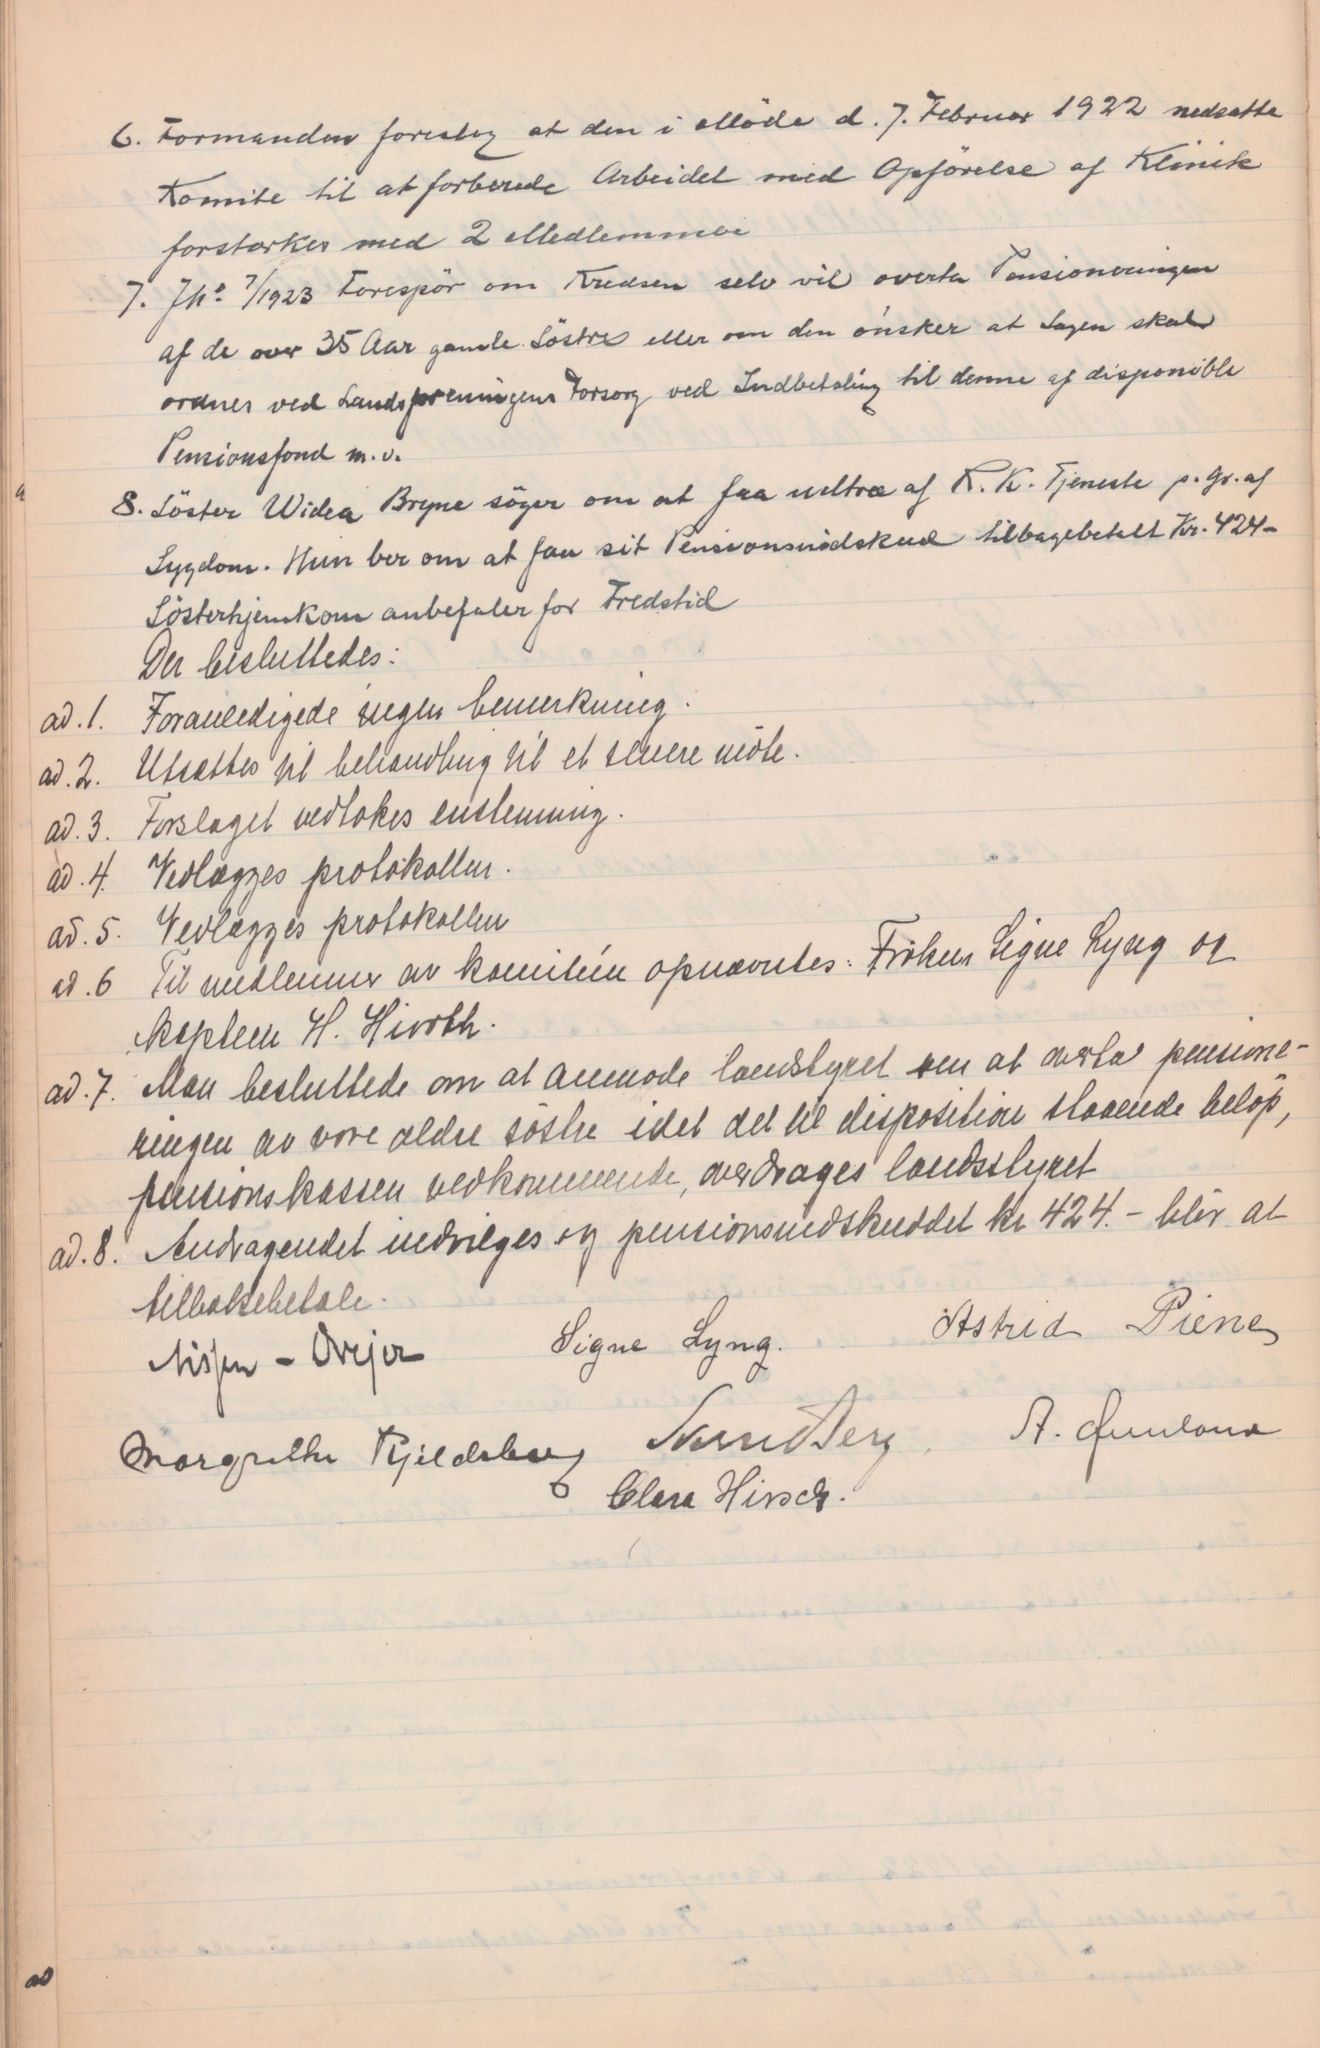 6. Formanden foreslog at den i Möde d. 7. Februar 1922 nedsatte
Komite til at forberede Arbeidet med Opförelse af Klinik
forstærkes med 2 Medlemmer
7. Jhr. 7/1923 Forespör om Kredsen selv vil overta Pensioneringen
af de over 35 Aar gamle Söstre eller om den önsker at Sagen skal
ordnes ved Landsforeningens Forsorg ved Indbetaling til denne af disponible
Pensionsfond m.v.
8. Söster Widea Bryne söger om at faa udtræ af R. K. Tjeneste p. Gr. af
Sygdom. Hun ber om at faa sit Pensionsindskud tilbagebetalt Kr. 424-
Sösterhjemkom anbefaler for Fredstid
Der besluttedes:
ad. 1. Foranledigede ingen bemerkning.
ad. 2. Utsættes til behandling til et senere möte.
ad. 3. Forslaget vedtokes enstemmig.
ad. 4. Vedlægges protokollen.
ad. 5. Vedlægges protokollen
ad. 6 Til medlemmer av komitéen opnævntes: Fröken Signe Lyng og
kaptein H. Hiorth.
ad. 7. Man besluttede om at anmode landsstyret om at overta pensione-
ringen av vore ældre söstre idet det til disposition staaende belöp,
pensionskassen vedkommende, overdrages landsstyret
ad. 8. Andragendet indvilges og pensionsindskuddet kr 424.- blir at
tilbakebetale.
Nissen - Drejer Signe Lyng. Astrid Piene
Margrethe Kjeldsberg Berg A.
Clara Hirsch.
ad